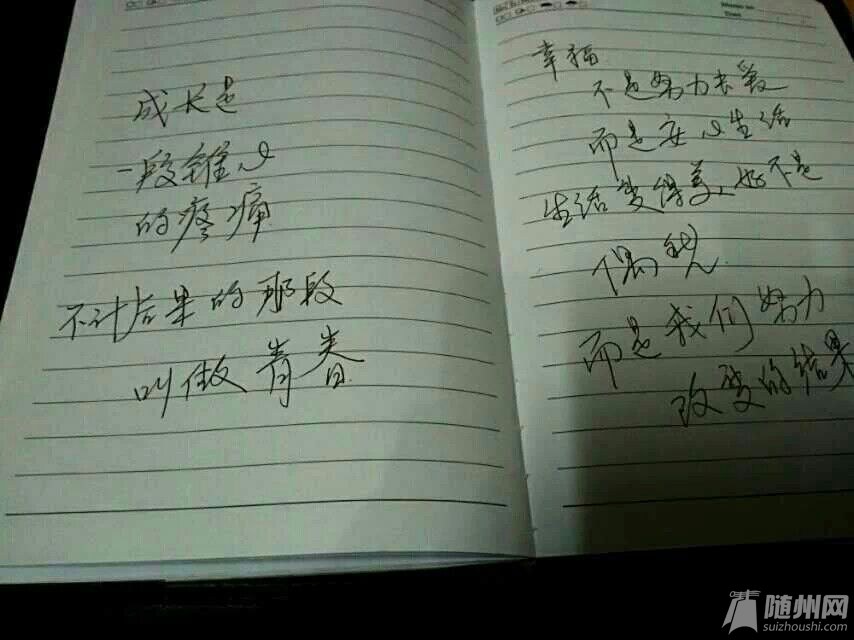 成长是
一段锥心
的疼痛
不计后果的那段
叫做青春
幸福
不是努力去爱
而是安心生活
生活变得美好不是
偶然
而是我们努力
改变的结果
随州网
suizhoushi.com